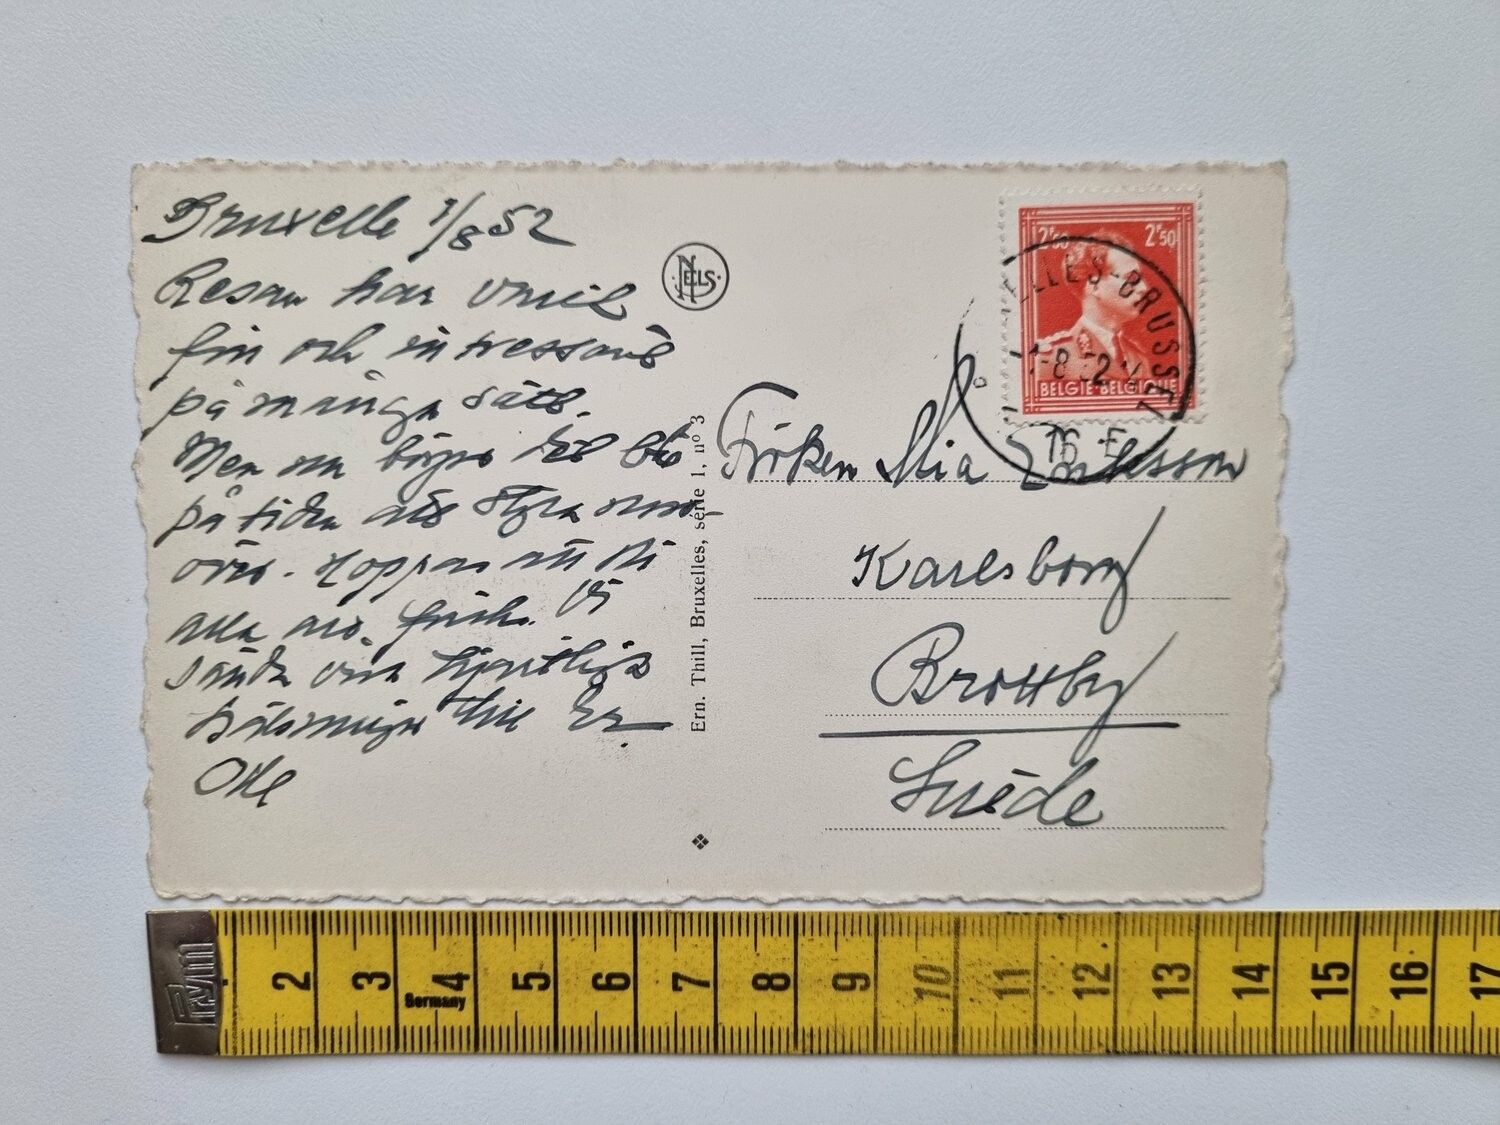 Bruxelle 1/8 52
Resan har varit
fin och intressant
på många sätt.
Men nu börjar det bli
på tiden att styra
Hoppas att Ni
alla frisk. Vi
sända våra hjärtliga
hälsningar till Er
Olle
NELS
Ern. Thill, Bruxelles, série 1, nº 3
2F50 2F50
BELGIE-BELGIQUE
ELLES-BRUSSEL
1-8 52
16 E
Fröken Mia Eriksson
Karlsborg
Brottby
Suède
Prym
Germany
2 3 4 5 6 7 8 9 10 11 12 13 14 15 16 17